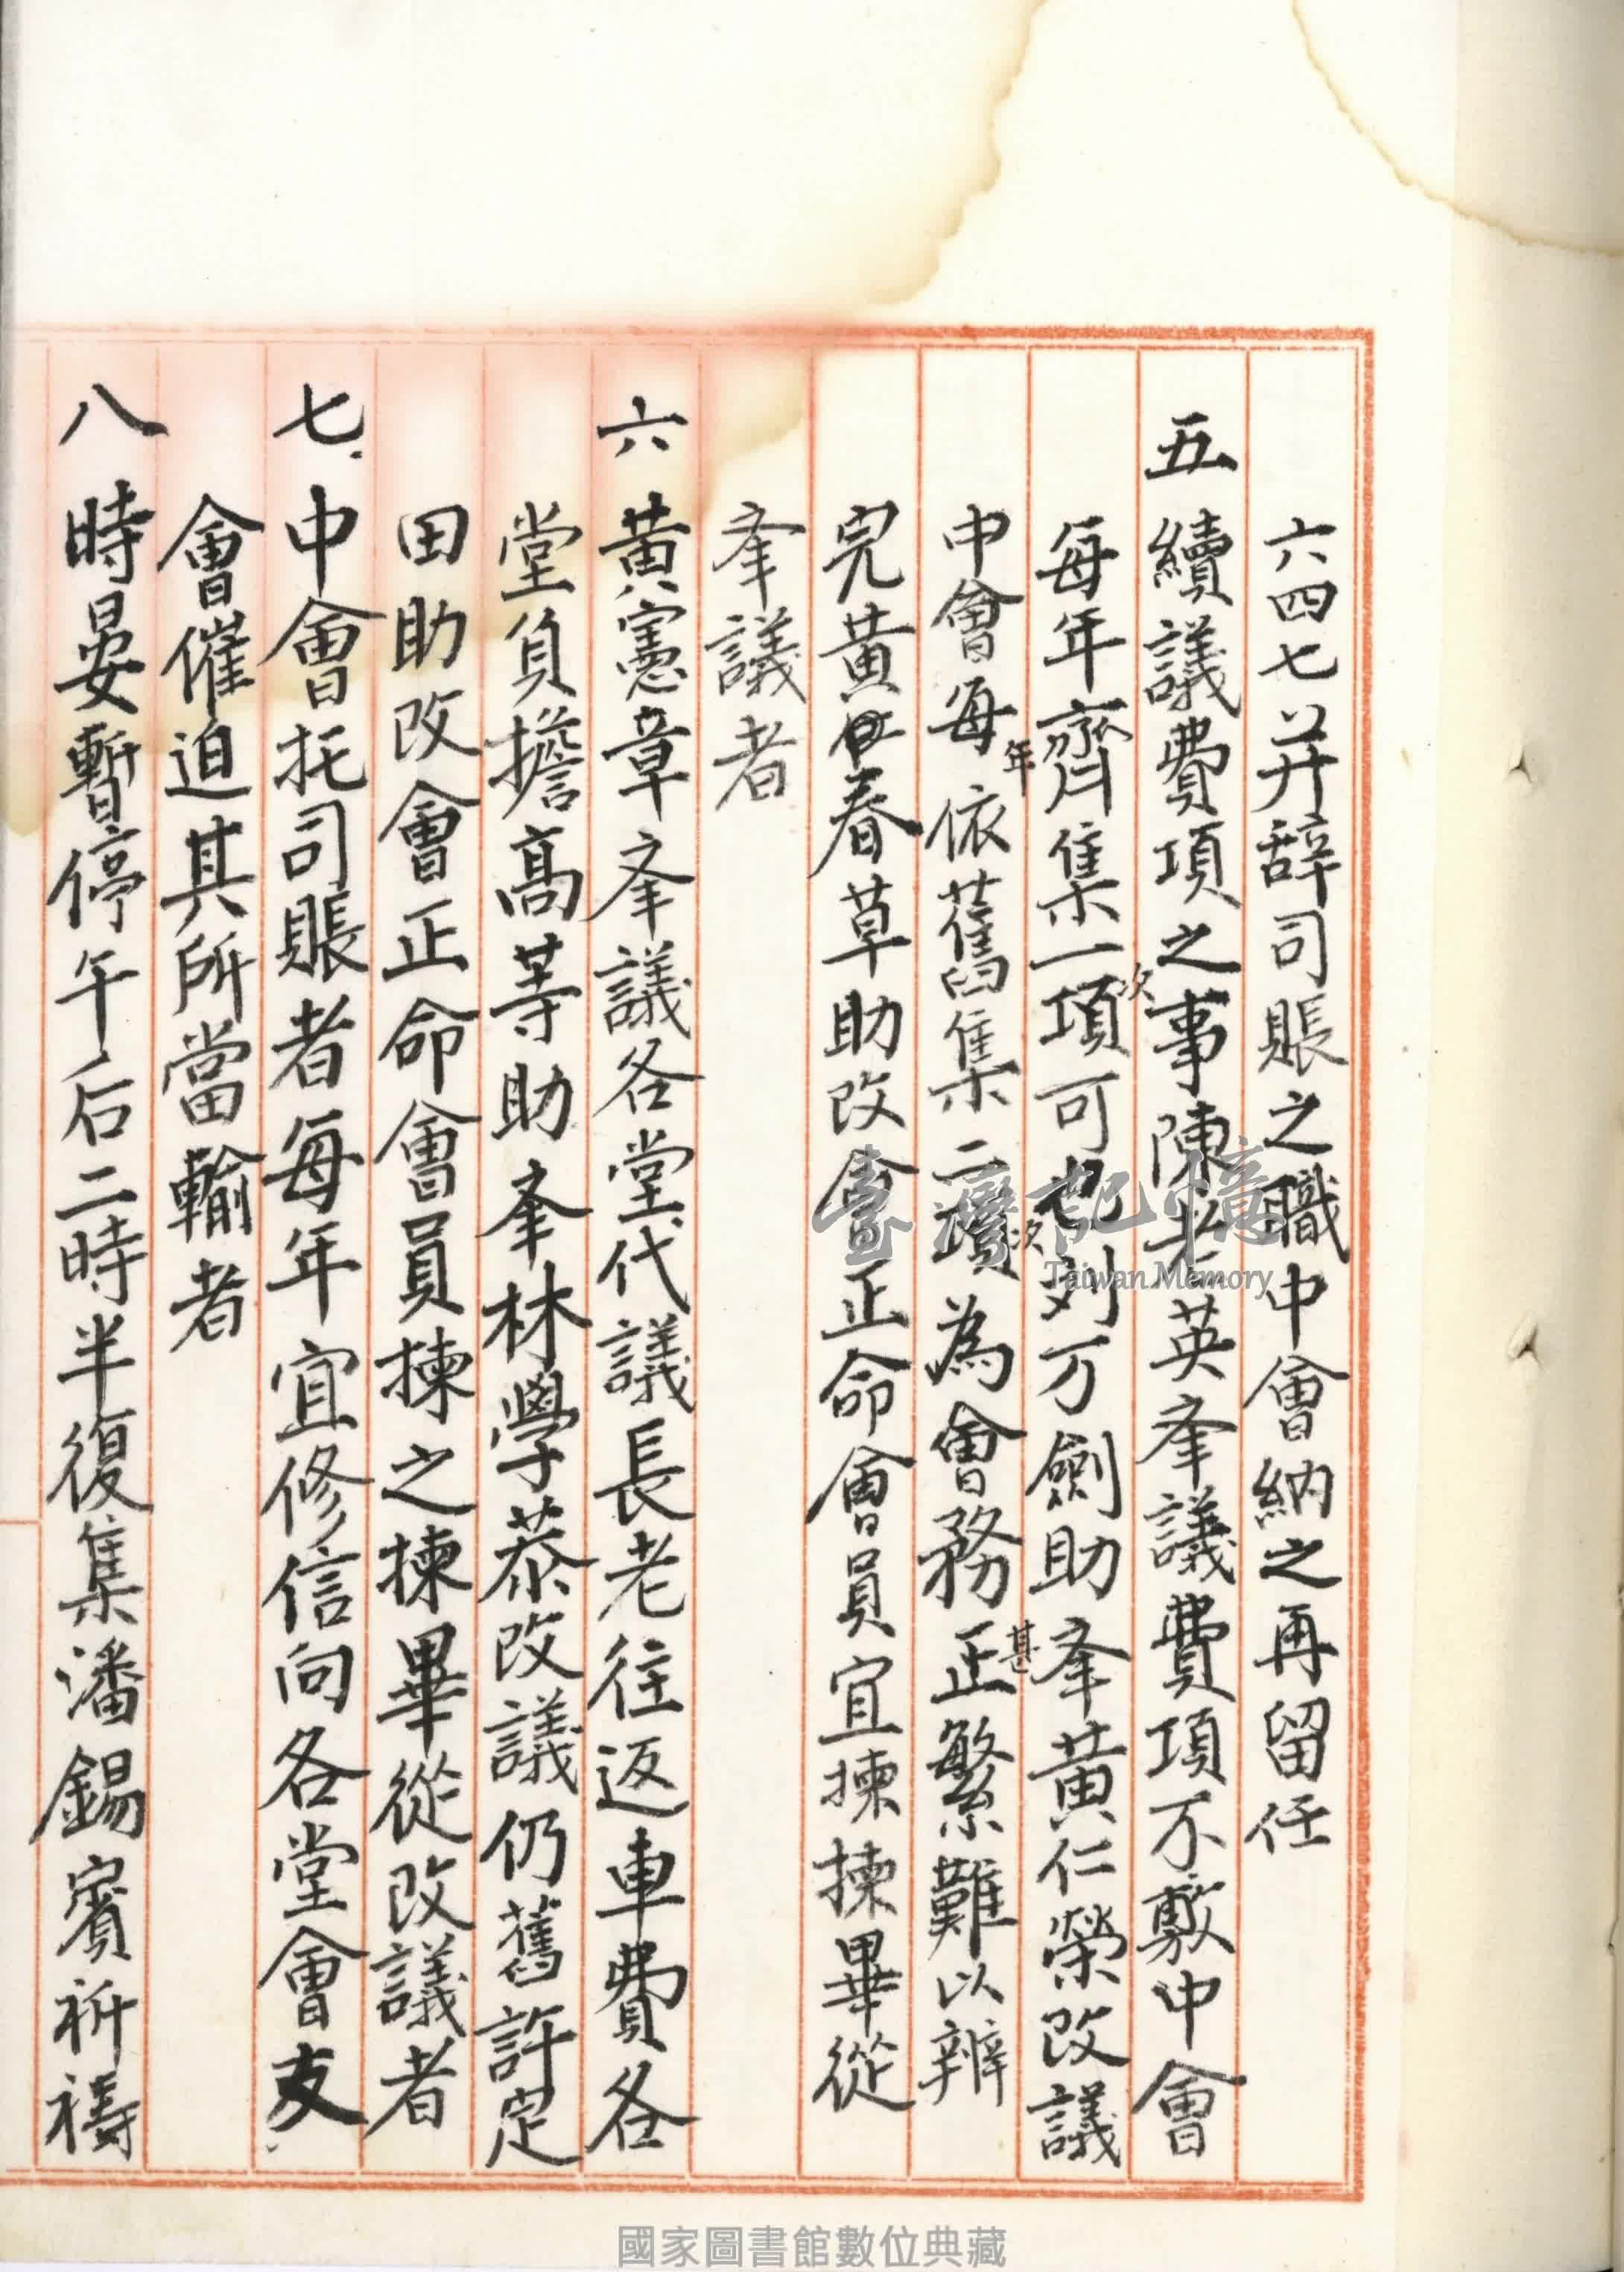 六四七并辞司賬之職中會納之再留任
五 續議費項之事陳老英夆議費項不敷中會
每年齊集一項次可也刘万劍助夆黃仁榮改議
中會每年依舊集二項次為會務正甚繁難以辨
完黃春草助改會正命會員宜揀揀畢從
夆議者
六 黃憲章夆議各堂代議長老往返車費各
堂負擔高等助夆林學恭改議仍舊許定
田助改會正命會員揀之揀畢從改議者
七 中會托司賬者每年宜修信向各堂會支
會催迫其所當輸者
八 時晏暫停午后二時半復集潘錫賓祈禱
臺灣記憶
Taiwan Memory
國家圖書館數位典藏